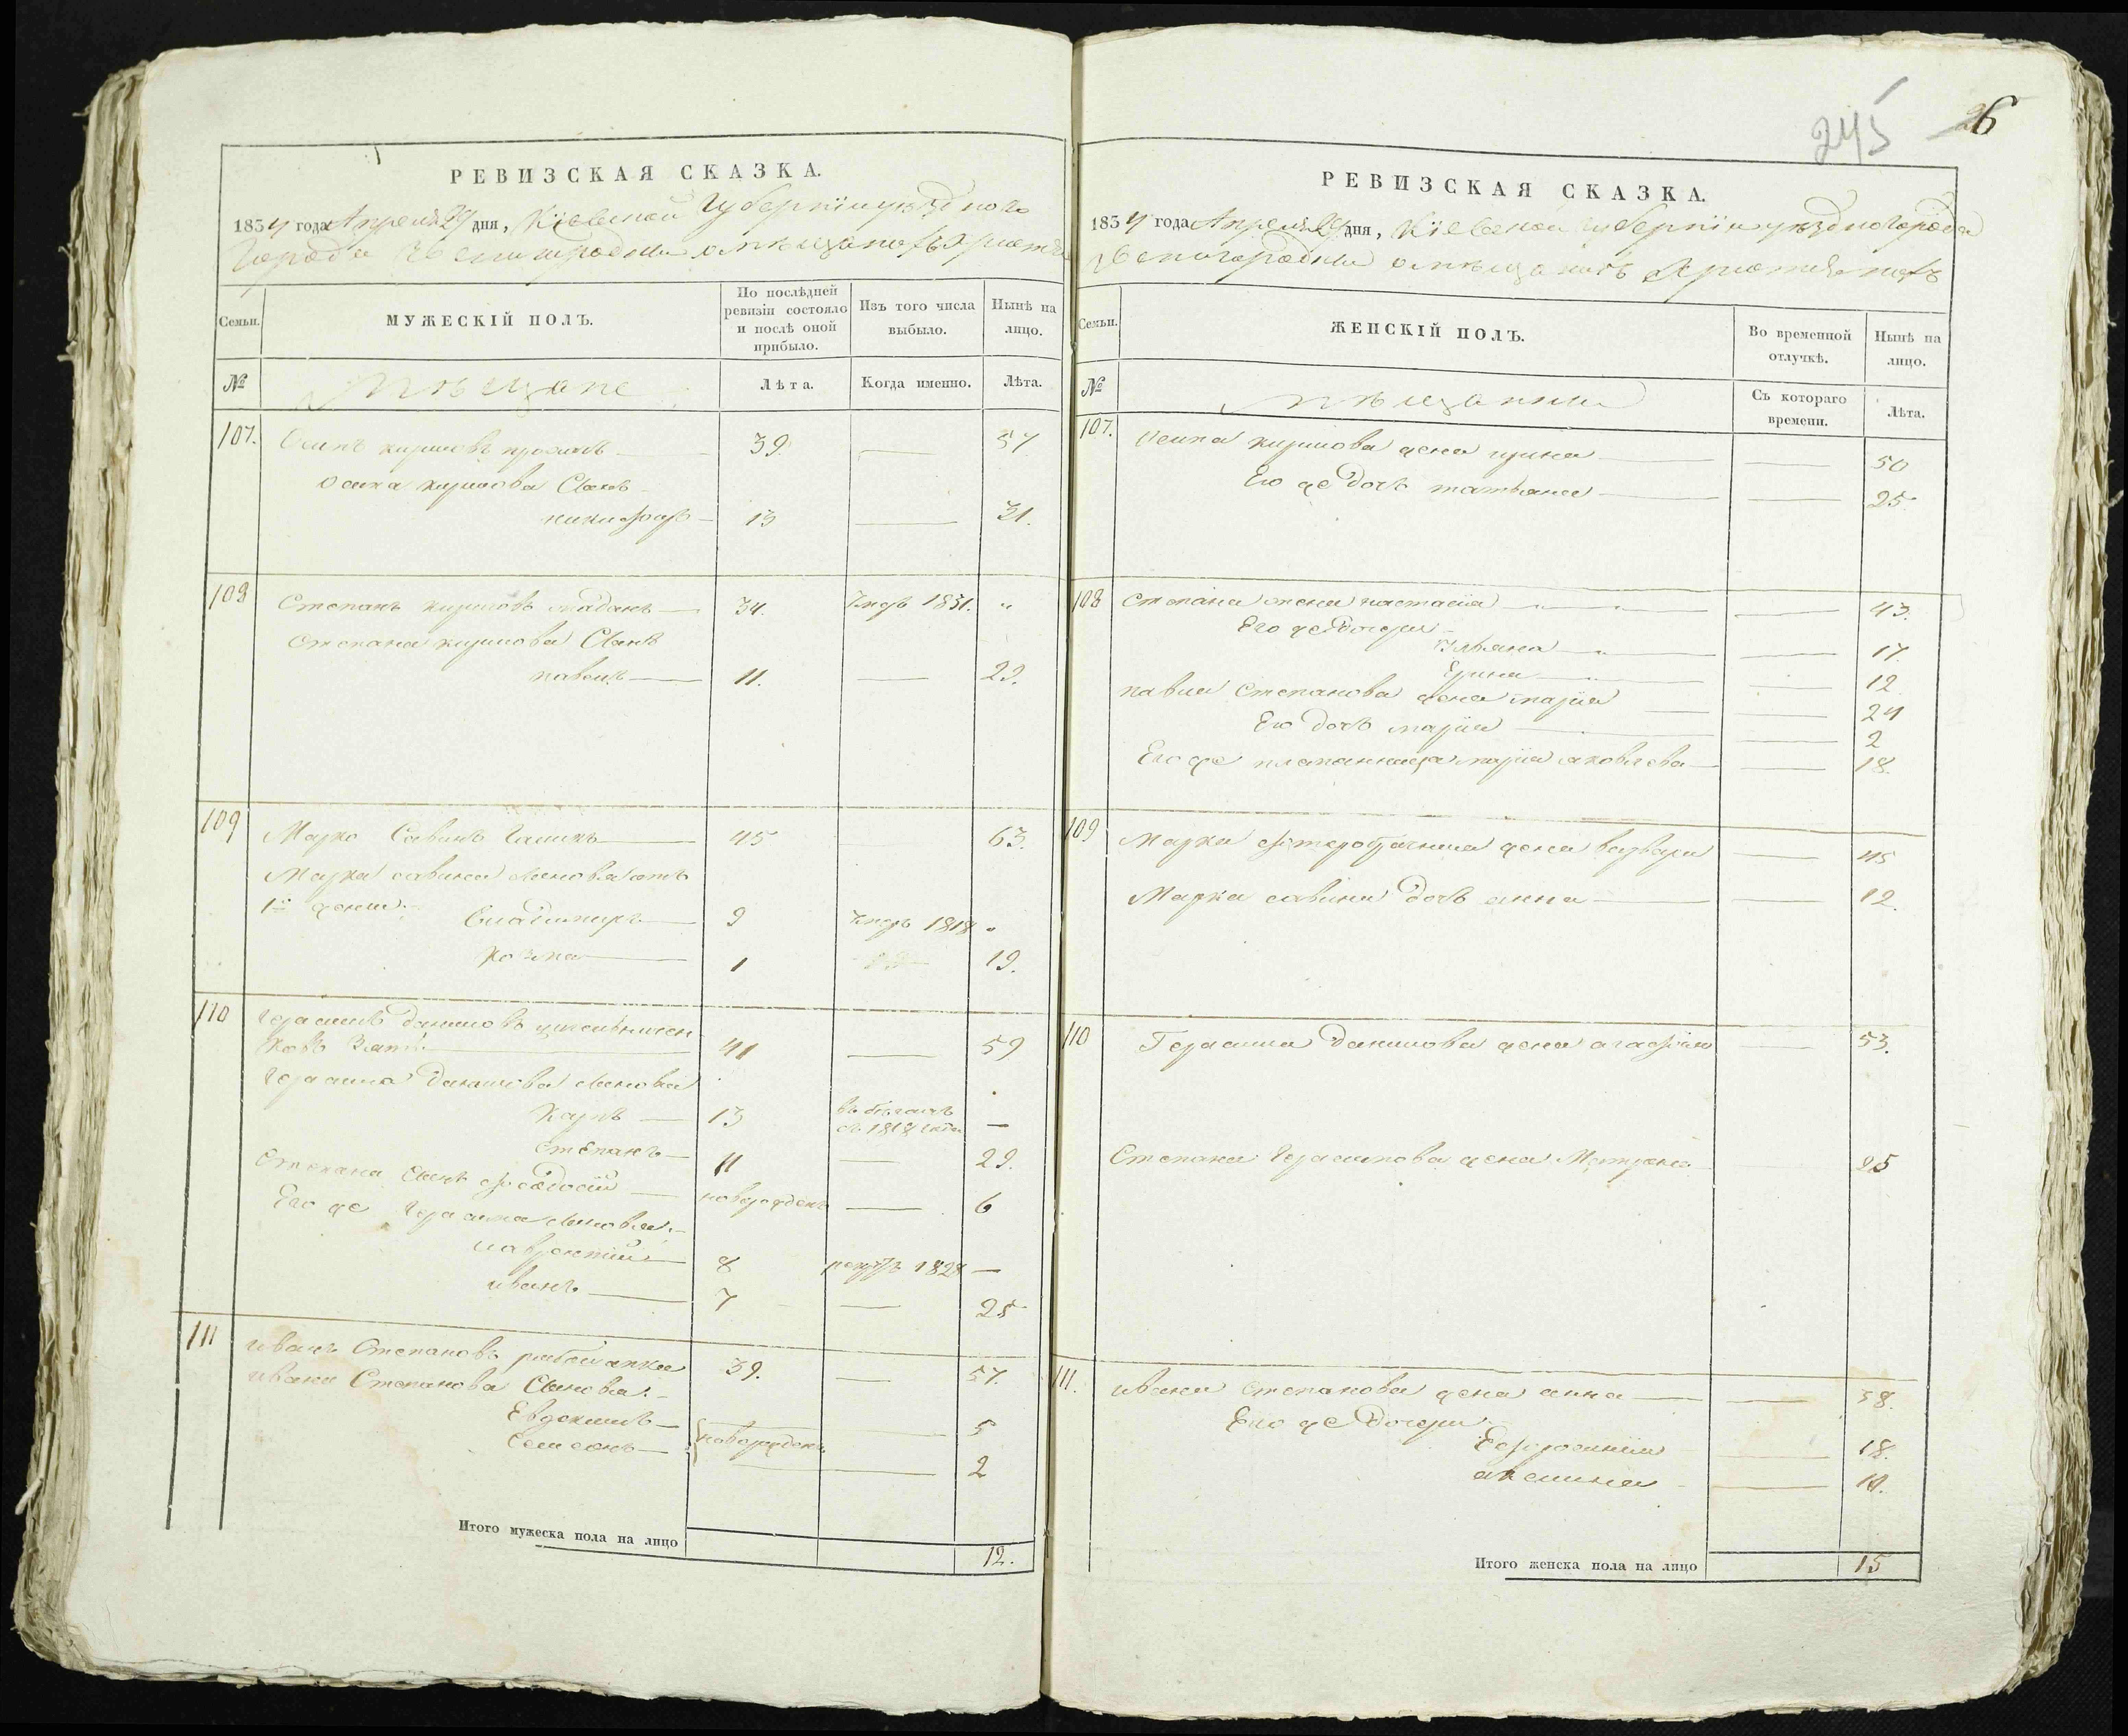 РЕВИЗСКАЯ СКАЗКА.
1834 года Апреля 29 дня, Кіевской Губерніи уѣздного
Города Звенигородки о мѣщанахъ Христіа
Семьи.
МУЖЕСКІЙ ПОЛЪ.
По послѣдней ревизіи состояло и послѣ оной прибыло.
Изъ того числа выбыло.
Нынѣ на лицо.
№
Мѣщане
Лѣта.
Когда именно.
Лѣта.
107. Осипъ кириловъ 39 — 57
Осипа кирилова Сынъ
никифоръ — 13 — 31.
108 Степанъ кириловъ — 34. Умеръ 1831. "
Степана кирилова Сынъ
павелъ — 11. — 29.
109 Марко Савинъ — 45 63.
Марка савина сыновья отъ
1й жены
Владимиръ — 9 Умеръ 1818 "
Козма — 1 19.
110 Герасимъ даниловъ
Зять — 41 — 59
Герасима Данилова сыновья
Карпъ — 13 въ бѣгахъ
съ 1818 года —
степанъ — 11 — 29.
Степана Сынъ феодосій — новорожденъ — 6
Его же Герасима сыновья
лаврентій — 8 рекрутъ 1828 —
иванъ — 7 — 25
111 иванъ Степановъ 39. — 57.
ивана Степанова Сыновья
Евдокимъ — 5
Семенъ — новорожденъ — 2
Итого мужеска пола на лицо 12.
245 26
РЕВИЗСКАЯ СКАЗКА.
1834 года Апреля 29 дня, Кіевской губерніи уѣздного города
Звенигородки о мѣщанахъ Христіянахъ
Семьи.
ЖЕНСКІЙ ПОЛЪ.
Во временной отлучкѣ.
Нынѣ на лицо.
№
мѣщанки
Съ котораго времени.
Лѣта.
107. Осипа кирилова жена ирина — — 50
Его же дочь татьяна — — 25.
108 степана жена настасія — — 43.
Его же дочери
Ульяна — — 17.
Ерина — — 12
павла степанова жена марія — — 24
Его дочь марія — — 2
Его же племянница марія яковлева — — 18.
109 Марка жена варвара — 45
Марка савина дочь анна — — 12.
110 Герасима данилова жена агафія — 53.
Степана Герасимова жена Матрена 25
111. ивана степанова жена анна — — 38.
Его же дочери
Ефросинія — 18.
акилина — 10.
Итого женска пола на лицо 15